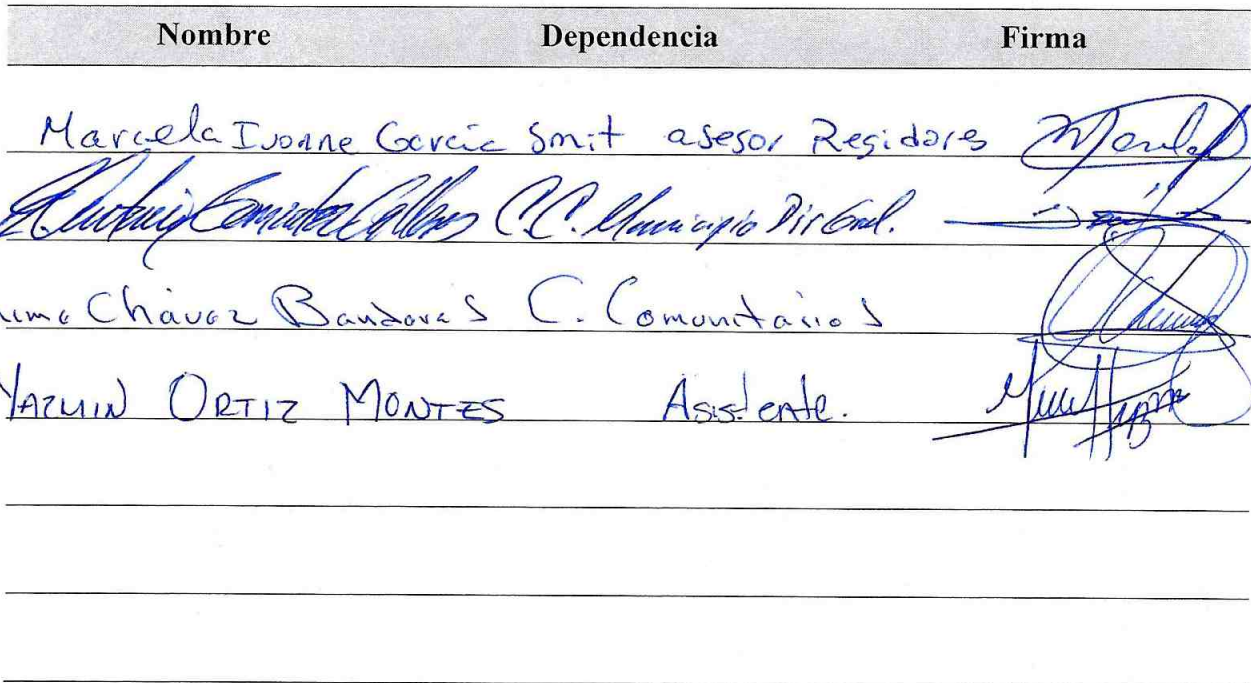 Nombre Dependencia Firma
Marcela Ivonne García Smit asesor Regidores
C.C. Municipio Dir Gral.
Chávez Banderas C. Comunitarios
YAZMIN ORTIZ MONTES Asistente.